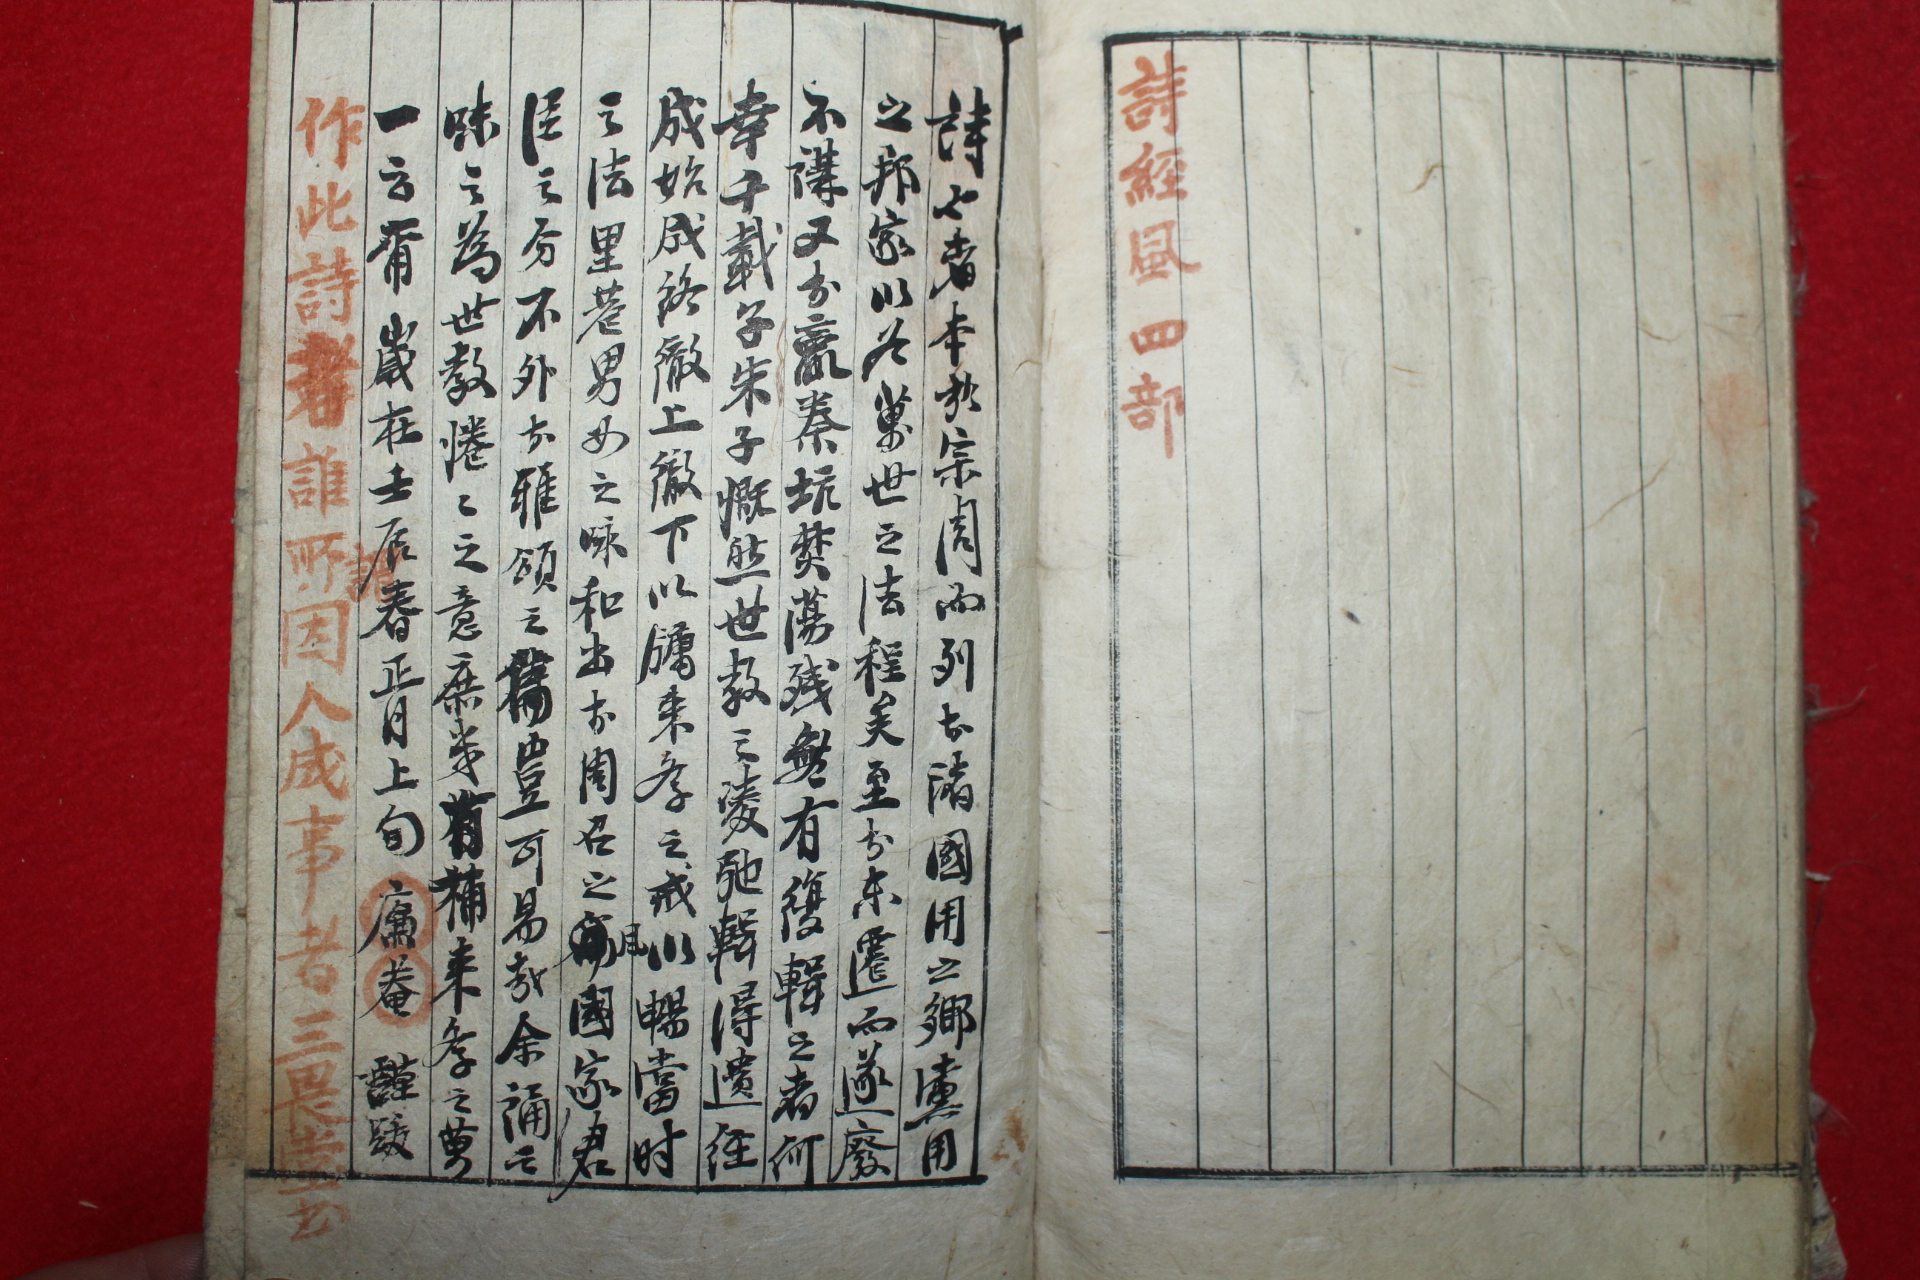 詩經風四部
詩也者本於宗周而列於諸國用之鄉黨用
之邦家以爲萬世之法程矣至於東遷而遂廢
不講又於嬴秦坑焚蕩殘無有復輯之者何
幸千載子朱子慨然世教之凌弛輯得遺經
成始成終徹上徹下以牖來學之戒以暢當时
之法里巷男女之咏和出於周召之風國家君
臣之分不外於雅頌之篇豈可易哉余誦之
味之為世教惓〻之意庶幾有補來學之萬
一云爾歲在壬辰春正月上旬 庸菴 謹跋
作此詩者誰所因人成事者三畏堂